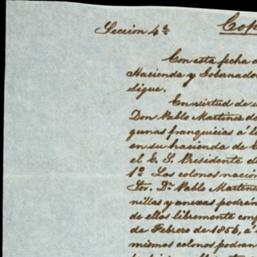 Seccion 4ª Cop
Con esta fecha d
Hacienda y Gobernado
sigue.
En virtud de
Don Pablo Martinez de
gunas franquicias á l
en su hacienda de
el E. S. Presidente d
1º Los colonos nacio
Sor. Dn. Pablo Martine
nillas y anexas podrán
de ellos libremente con
de Febrero de 1856, á
mismos colonos podran